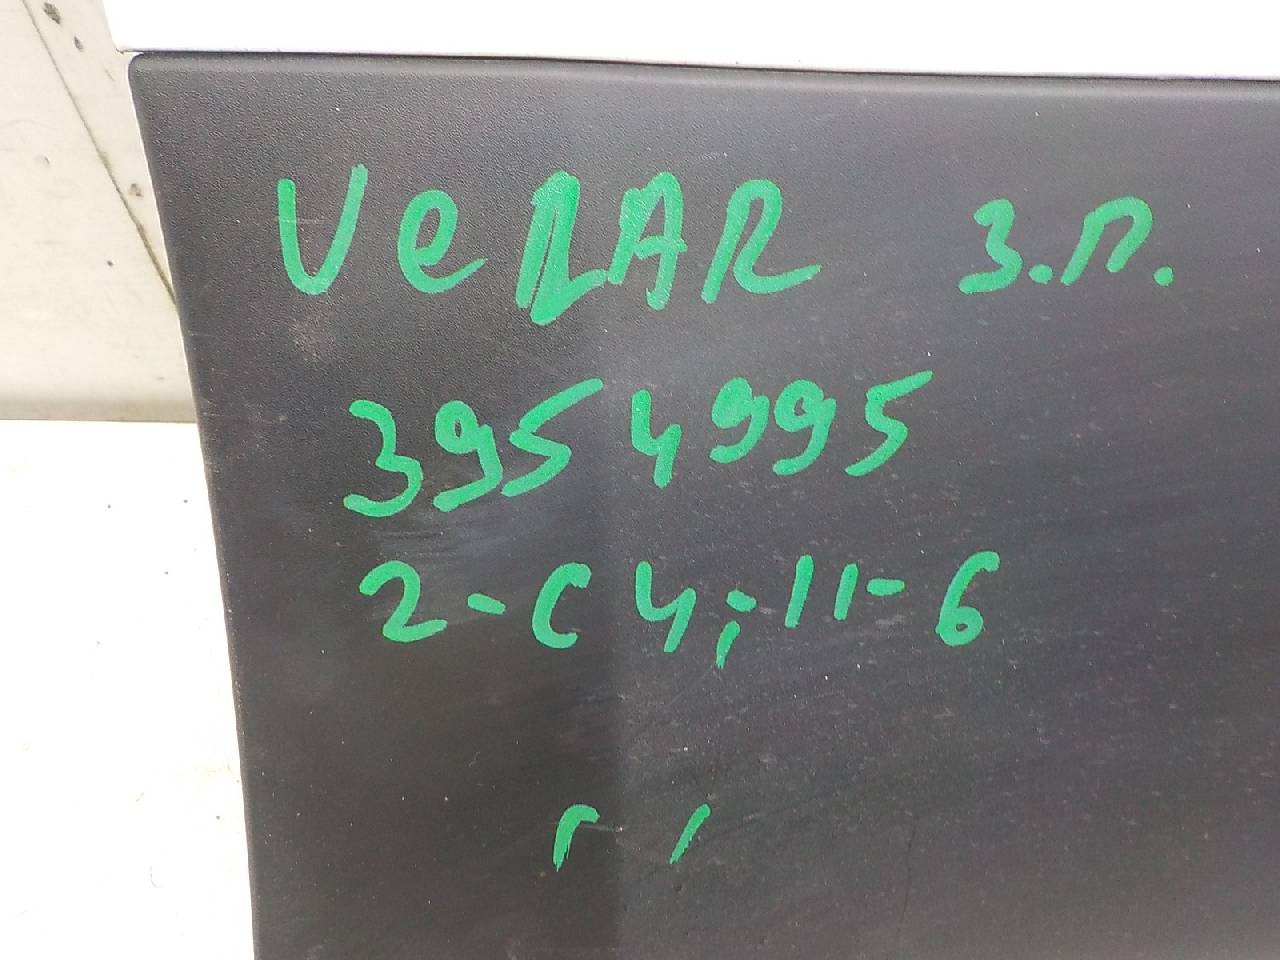 VeLAR З.П.
3954995
2-C4;11-6